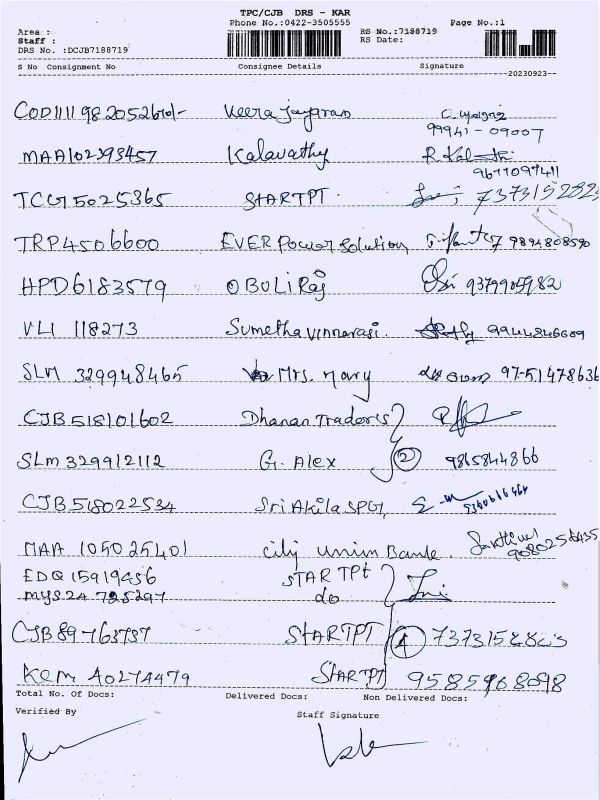 TPC/CJB DRS - KAR
Phone No.:0422-3505555 Page No.:1
Area : RS No.:7188719
Staff : RS Date:
DRS No. :DCJB7188719
S No Consignment No Consignee Details Signature
20230923
COD1111982052610/- Veera Jayarao
99941-09007
MAA102393457 Kalavathy
9677097411
TCG15025365 STARTPT.
TRP4506600 EVER Power Solution 9894808590
HPD6183579 OBULi Raj 9379905982
VLI 118273 Sumetha vinnarasi. 9944846609
SLM 329948465 Mrs. Mary 97-51478636
CJB518101602 Dhanan Traders
SLM 329912112 G. Alex 2 9865844866
CJB518022534 Sri Akila SPG,
MAA 105025401 city union Bank.
EDQ15919456 STAR TPt
MYS24 725297 do
CJB89763737 STARTPT 4
KEM 40274479 STARTPT 9585968098
Total No. Of Docs: Delivered Docs: Non Delivered Docs:
Verified By Staff Signature